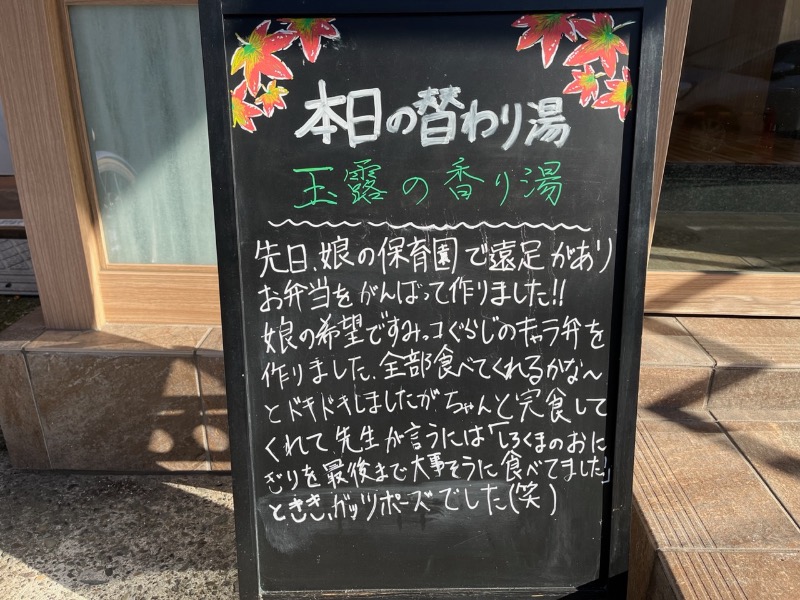 本日の替わり湯
玉露の香り湯
先日、娘の保育園で遠足があり
お弁当をがんばって作りました!!
娘の希望ですみっコぐらしのキャラ弁を
作りました、全部食べてくれるかな〜
とドキドキしましたが、ちゃんと完食して
くれて、先生が言うには「しろくまのおに
ぎりを最後まで大事そうに食べてました」
ときき、ガッツポーズでした(笑)